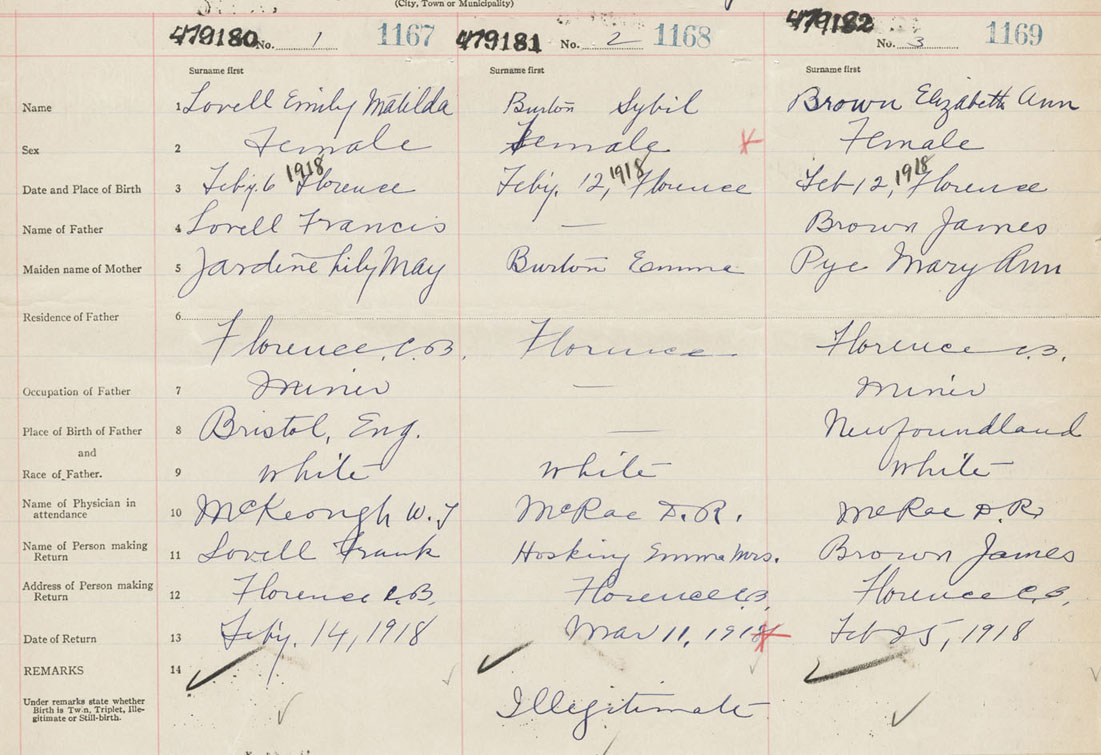 (City, Town or Municipality)
479180 No. 1 1167 479181 No. 2 1168 479182 No. 3 1169
Surname first Surname first Surname first
Name 1 Lovell Emily Matilda Burton Sybil Brown Elizabeth Ann
Sex 2 Female Female Female
Date and Place of Birth 3 Feby. 6 1918 Florence Feby. 12, 1918 Florence Feb 12, 1918 Florence
Name of Father 4 Lovell Francis — Brown James
Maiden name of Mother 5 Jardine Lily May Burton Emma Pye Mary Ann
Residence of Father 6
Florence, C.B. Florence Florence C.B.
Occupation of Father 7 Miner — Miner
Place of Birth of Father 8 Bristol, Eng. — Newfoundland
and
Race of Father. 9 White White White
Name of Physician in
attendance 10 McKeough W. J McRae D. R. McRae D. R.
Name of Person making
Return 11 Lovell Frank Hosking Emma Mrs. Brown James
Address of Person making
Return 12 Florence C.B. Florence C.B. Florence C.B.
Date of Return 13 Feby. 14, 1918 Mar 11, 1918 Feb 25, 1918
REMARKS 14
Under remarks state whether
Birth is Twin, Triplet, Ille-
gitimate or Still-birth.
Illegitimate